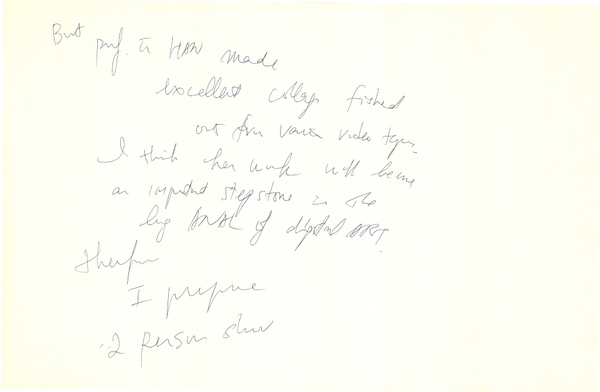 But prof. Yi HAN made
excellent collage fished
out from various video tapes.
I think her work will become
an important step stone in the
big ANAL of digital ART.
therefore
I propose
2 person show